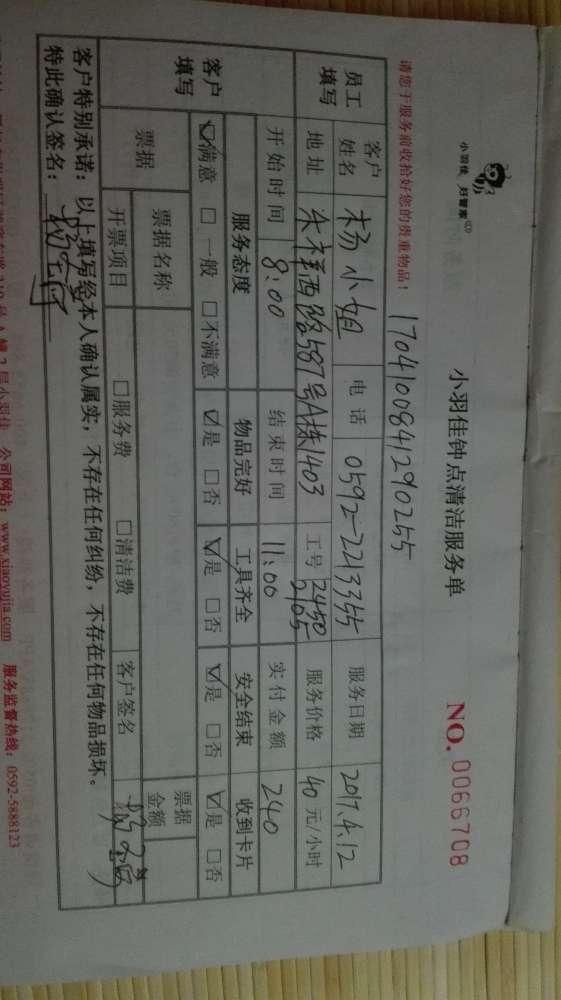 小羽佳 好管家
小羽佳钟点清洁服务单
NO. 0066708
1704100841290255
请您于服务前收拾好您的贵重物品！
员工填写
客户姓名 杨小姐 电话 0592-2213355 服务日期 2017.4.12
地址 禾祥西路587号A栋1403 工号 2450 2105 服务价格 40元/小时
开始时间 8:00 结束时间 11:00 实付金额 240
客户填写
服务态度 物品完好 工具齐全 安全结束 收到卡片
☑满意 □一般 □不满意 ☑是 □否 ☑是 □否 ☑是 □否 ☑是 □否
票据 票据名称 票据金额
开票项目 □服务费 □清洁费 客户签名
客户特别承诺：以上填写经本人确认属实，不存在任何纠纷，不存在任何物品损坏。
特此确认签名：
2层小羽佳 公司网站：www.xiaoyujia.com 服务监督热线：0592-5888123